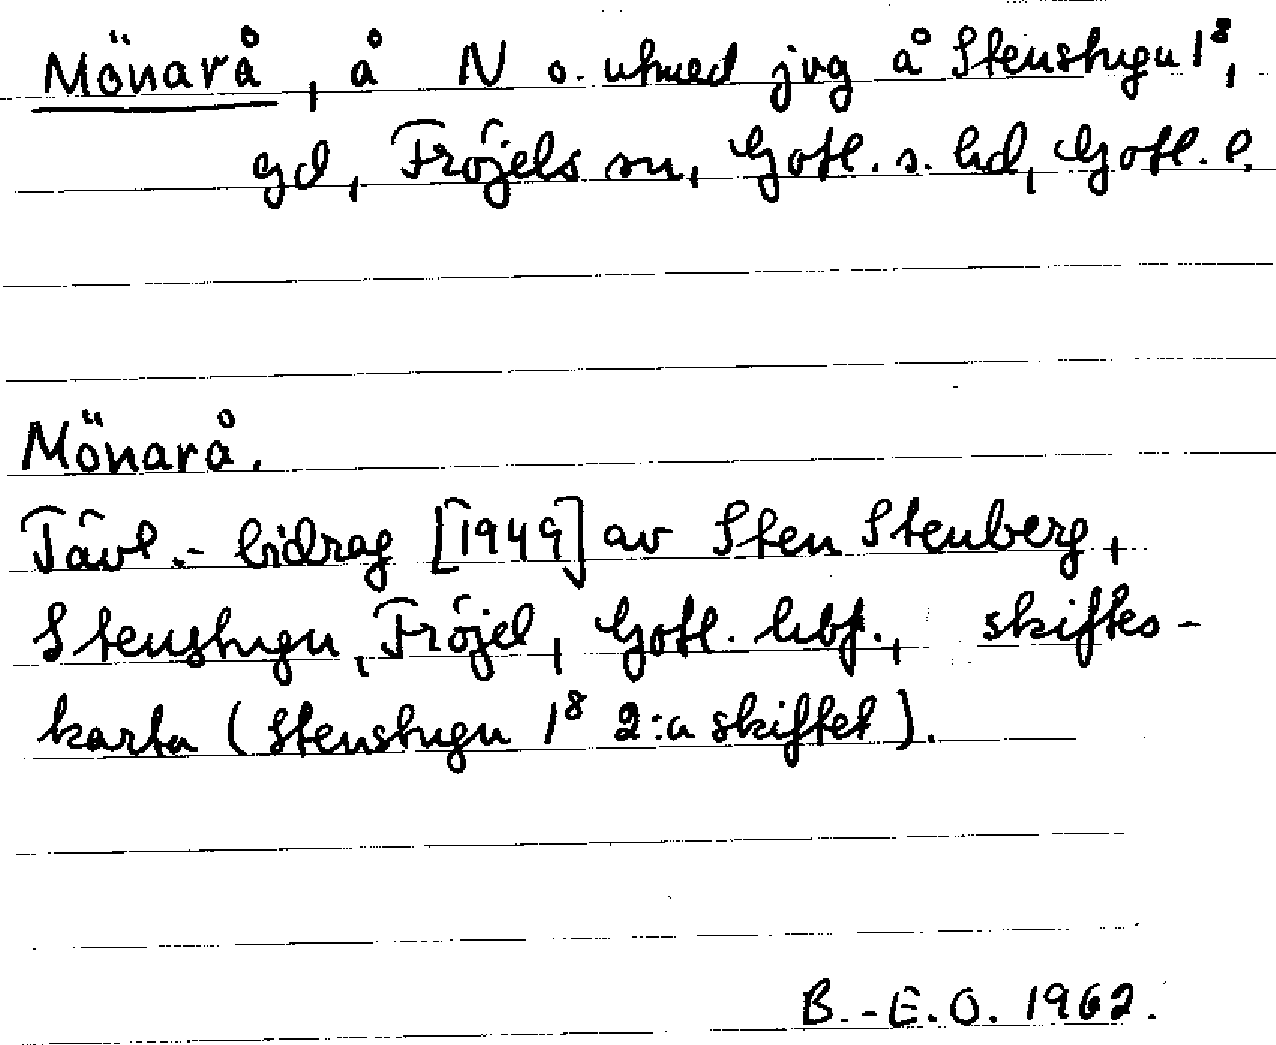 Mönarå, å N o. utmed jvg å Stenstugu 1⁸,
gd, Fröjels sn, Gotl. s. hd, Gotl. l.
Mönarå.
Tävl.-bidrag [1949] av Sten Stenberg,
Stenstugu, Fröjel, Gotl. hbf., skiftes-
karta (Stenstugu 1⁸ 2:a skiftet).
B.-E.O. 1962.